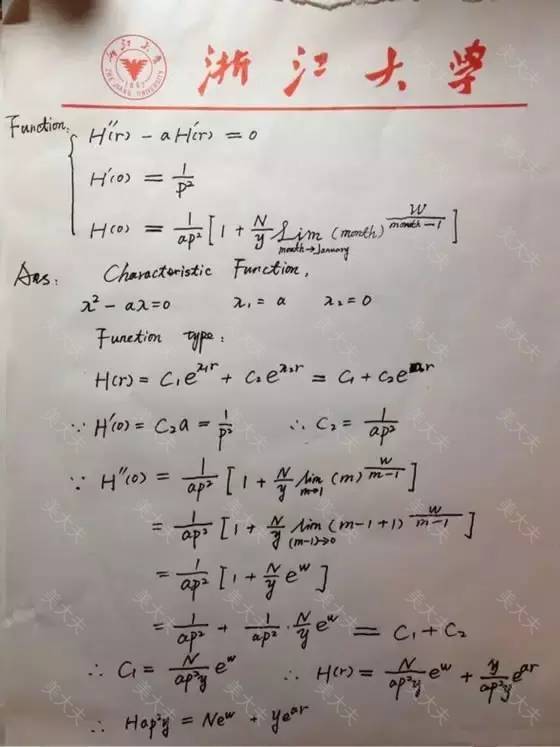 浙江大学
浙江大学
ZHE JIANG UNIVERSITY
1897
Function:
H''(r) - aH'(r) = 0
H'(0) = 1/p²
H(0) = 1/ap² [1 + N/y Lim month→January (month)^(W/(month-1))]
Ans: Characteristic Function,
λ² - aλ = 0 λ₁ = a λ₂ = 0
Function type:
H(r) = C₁e^(λ₁r) + C₂e^(λ₂r) = C₁ + C₂e^(ar)
∵ H'(0) = C₂a = 1/p² ∴ C₂ = 1/ap²
∵ H''(0) = 1/ap² [1 + N/y lim m→1 (m)^(W/(m-1))]
= 1/ap² [1 + N/y lim (m-1)→0 (m-1+1)^(W/(m-1))]
= 1/ap² [1 + N/y e^w]
= 1/ap² + 1/ap² · N/y e^w = C₁ + C₂
∴ C₁ = N/ap²y e^w ∴ H(r) = N/ap²y e^w + y/ap²y e^(ar)
∴ Hap²y = Ne^w + ye^(ar)
美大夫